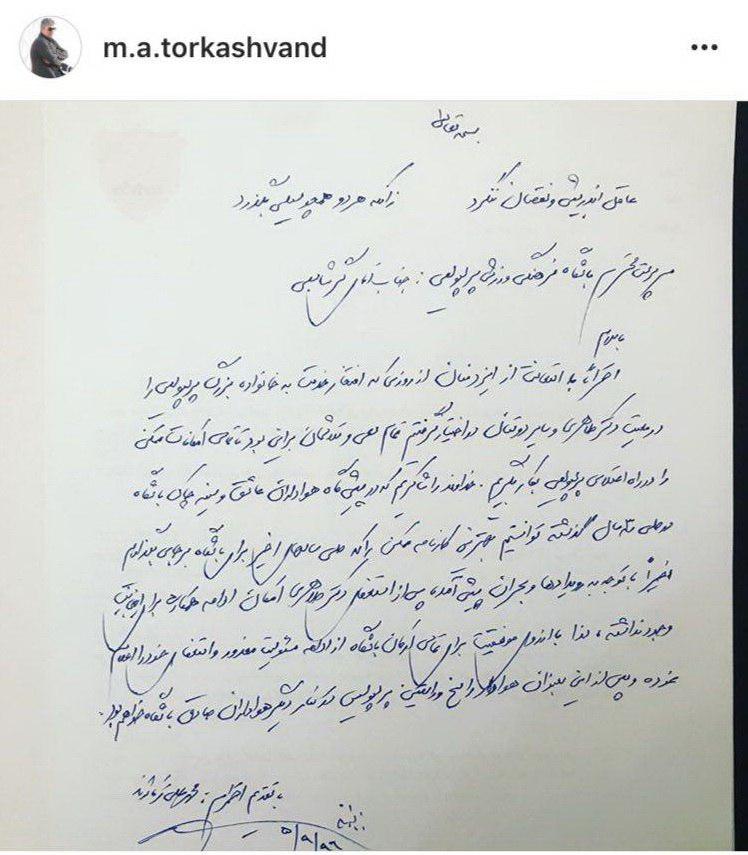 m.a.torkashvand
بسمه تعالی
عاقل اندیشی و نقصان ننگرد زانکه هر دو همچو سیلی بگذرد
سرپرست محترم باشگاه فرهنگی ورزشی پرسپولیس : جناب آقای گرشاسبی
باسلام
احتراماً با استعانت از ایزد منان از روزی که افتخار خدمت به خانواده بزرگ پرسپولیس را
در معیت دکتر طاهری و سایر دوستان در اختیار گرفتم تمام سعی و تلاشمان براین بود تا تمامی امکانات ممکن
را در راه اعتلای پرسپولیس بکار بگیریم . خداوند را شاکریم که در پیشگاه هواداران عاشق و سینه چاک باشگاه
در طی سال گذشته توانستیم بهترین کارنامه ممکن را که طی سالهای اخیر برای باشگاه برجای بگذاریم
اخیراً با توجه به رویدادها و بحران پیش آمده پس از استعفای دکتر طاهری امکان ادامه همکاری برای اینجانب
وجود نداشته ، لذا با آرزوی موفقیت برای تمامی ارکان باشگاه از ادامه مسئولیت معذور و استعفای خود را اعلام
نموده و پس از این بعنوان هوادار راسخ و راستین پرسپولیس در کنار دیگر هواداران صادق باشگاه خواهم بود .
با تقدیم احترام : محمدعلی ترکاشوند